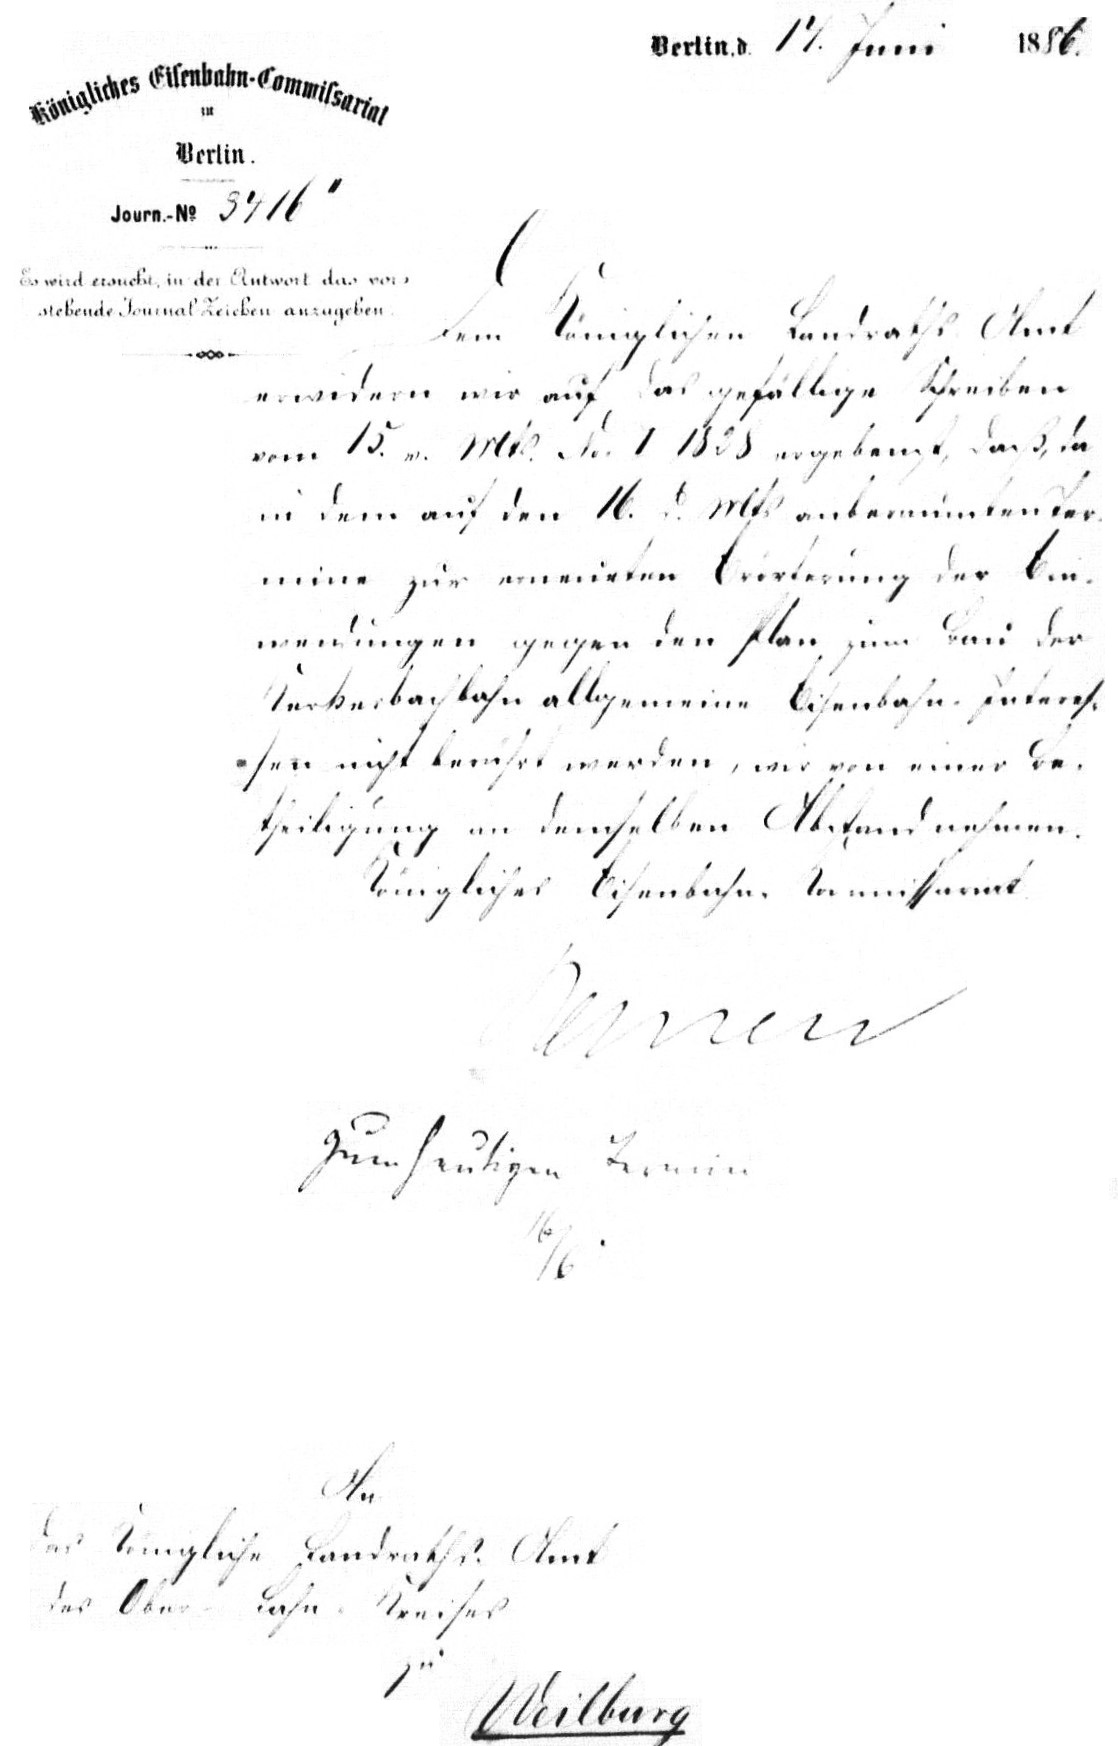 Berlin, d. 14. Juni 1886.
Königliches Eisenbahn-Commissariat
in
Berlin.
Journ.-No 3416"
Es wird ersucht, in der Antwort das vor-
stehende Journal Zeichen anzugeben.
Dem Königlichen Landraths-Amt
erwidern wir auf das gefällige Schreiben
vom 15. v. Mts. No. I 1828 ergebenst, daß, da
in dem auf den 16. d. Mts anberaumten Ter-
mine zur erneuten Erörterung der Ein-
wendungen gegen den Plan zum Bau der
Kerkerbachbahn allgemeine Eisenbahn-Interes-
sen nicht berührt werden, wir von einer Be-
theiligung an demselben Abstand nehmen.
Königliches Eisenbahn-Kommissariat
Zum heutigen Termin
16/6.
An
das Königliche Landraths-Amt
des Ober-Lahn-Kreises
zu
Weilburg